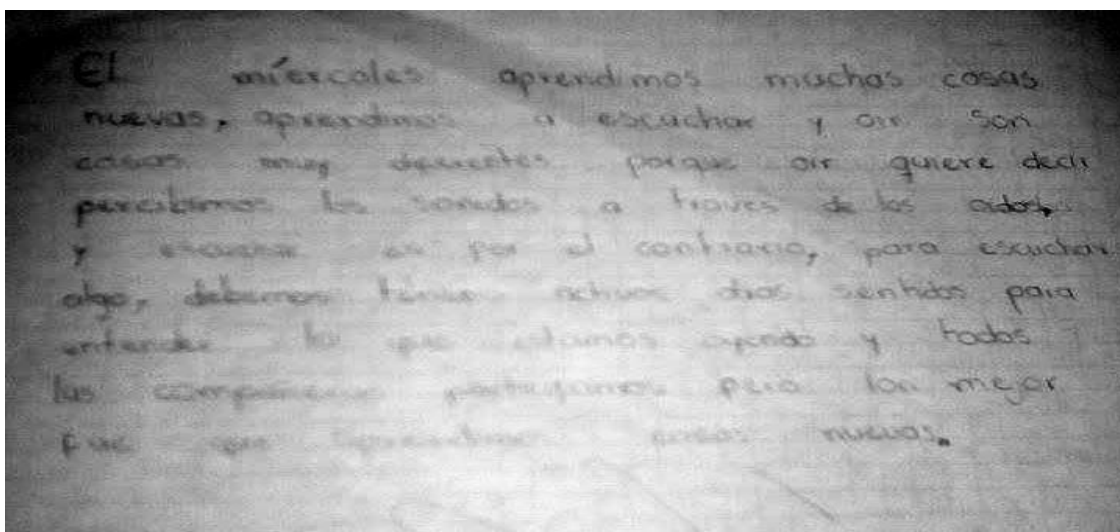 El miércoles aprendimos muchas cosas
nuevas, aprendimos a escuchar y oir son
cosas muy diferentes porque oir quiere decir
percibimos los sonidos a través de los oidos,
y escuchar es por el contrario, para escuchar
algo, debemos tener activos otros sentidos para
entender lo que estamos oyendo y todos
los compañeros participamos pero lon mejor
fue que aprendimos cosas nuevas.